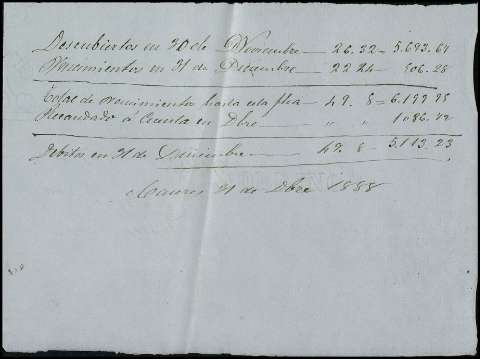 Descubiertos en 30 de Noviembre — 26. 32 = 5.693.67
Vencimientos en 31 de Diciembre — 22 24 — 506.28
Total de vencimiento hasta esta fha — 49. 8 = 6.199.95
Recaudado á Cuenta en Dbre — " " 1086.72
Debitos en 31 de Diciembre — 49. 8 — 5.113.23
31 de Dbre 1888